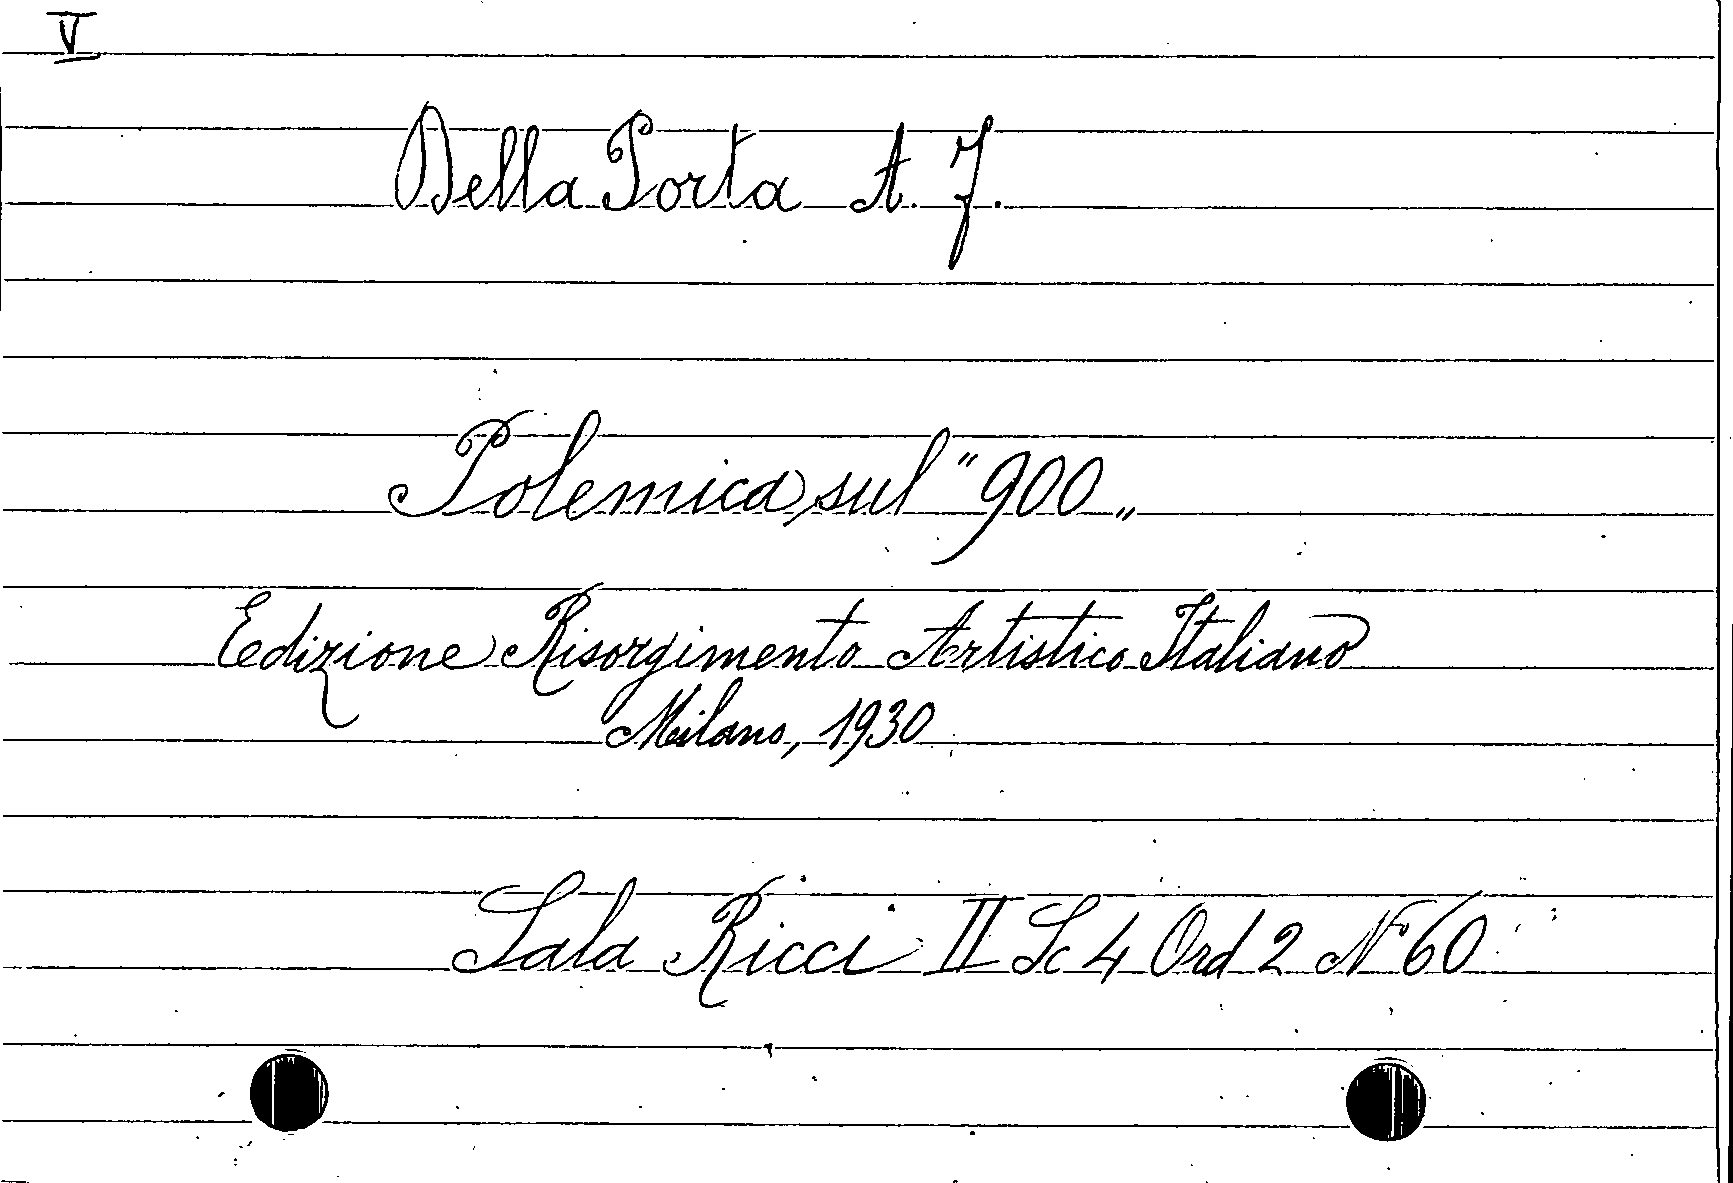 V
Della Porta A. F.
Polemica sul "900„
Edizione Risorgimento Artistico Italiano
Milano, 1930
Sala Ricci II Sc 4 Ord 2 N 60